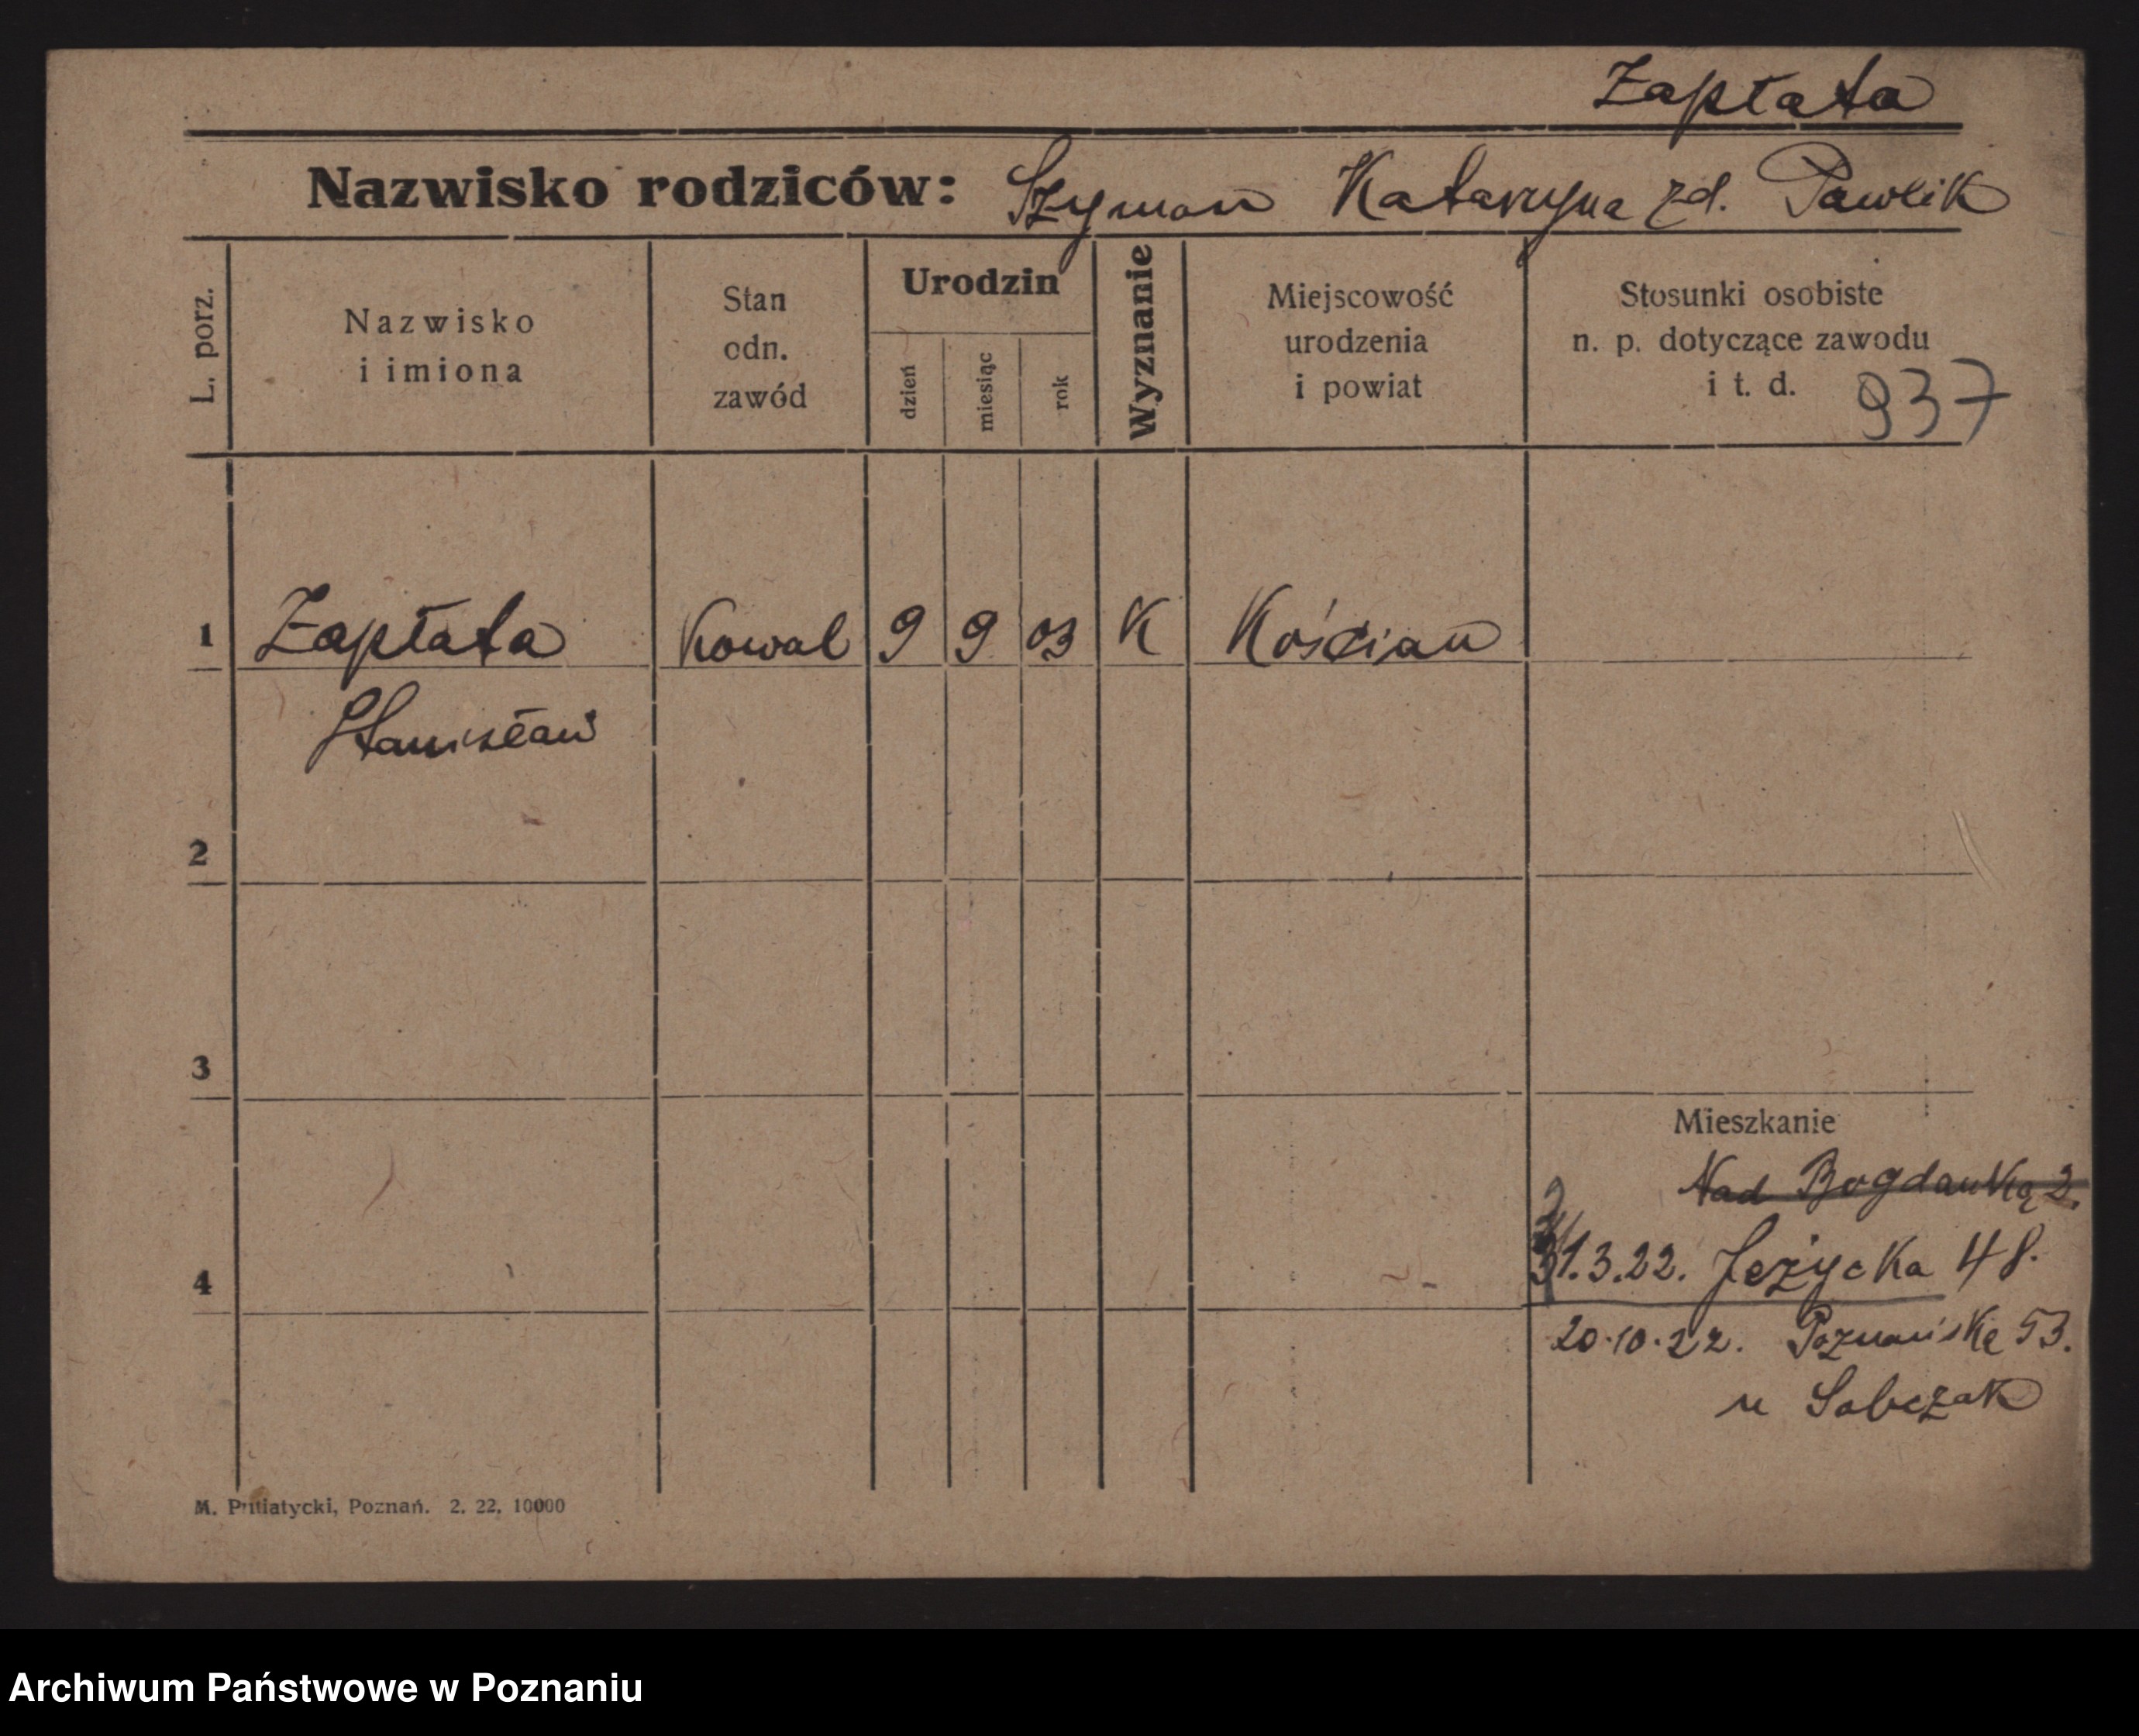 Zapłata
Nazwisko rodziców: Szyman Katarzyna zd. Pawlik
L. porz.
Nazwisko
i imiona
Stan
odn.
zawód
Urodzin
dzień
miesiąc
rok
Wyznanie
Miejscowość
urodzenia
i powiat
Stosunki osobiste
n. p. dotyczące zawodu
i t. d. 937
1 Zapłata Kowal 9 9 03 K Kościan
Stanisław
2
3
Mieszkanie
Nad Bogdanką 2.
31.3.22. Jeżycka 48.
4
20.10.22. Poznańska 53.
u Sobczak
M. Putiatycki, Poznań. 2. 22, 10000
Archiwum Państwowe w Poznaniu